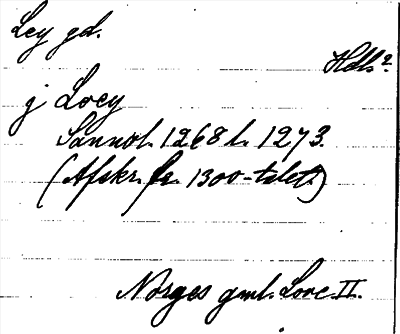 Ley gd.
Hdls?
j Loey
Sannol. 1268 l. 1273.
(Afskr. fr. 1300-talet.)
Norges gml. Love II.